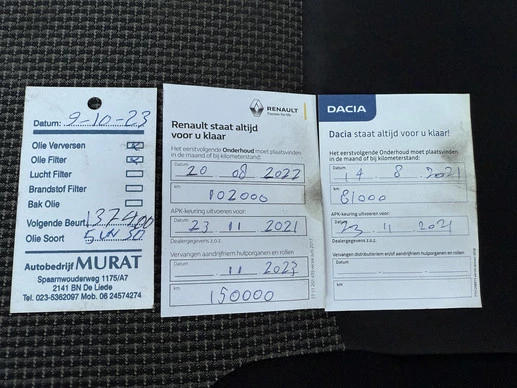 Datum: 9-10-23
Olie Verversen
Olie Filter
Lucht Filter
Brandstof Filter
Bak Olie
Volgende Beurt 137400
Olie Soort 5W30
Autobedrijf MURAT
Spaarnwouderweg 1175/A7
2141 BN De Liede
Tel. 023-5362097 Mob. 06 24574274
RENAULT
Passion for life
Renault staat altijd
voor u klaar
Het eerstvolgende Onderhoud moet plaatsvinden
in de maand of bij kilometerstand:
Datum 20 08 2022
km
102000
APK-keuring uitvoeren voor:
Datum
23 11 2021
Dealergegevens z.o.z.
Vervangen aandrijfriem hulporganen en rollen
Datum
11 2023
km
150000
DACIA
Dacia staat altijd voor u klaar!
Het eerstvolgende Onderhoud moet plaatsvinden
in de maand of bij kilometerstand:
Datum 14 8 2021
km
81000
APK-keuring uitvoeren voor:
Datum
23 11 2021
Dealergegevens z.o.z.
Vervangen distributieriem en/of aandrijfriem hulporganen en rollen
Datum
km